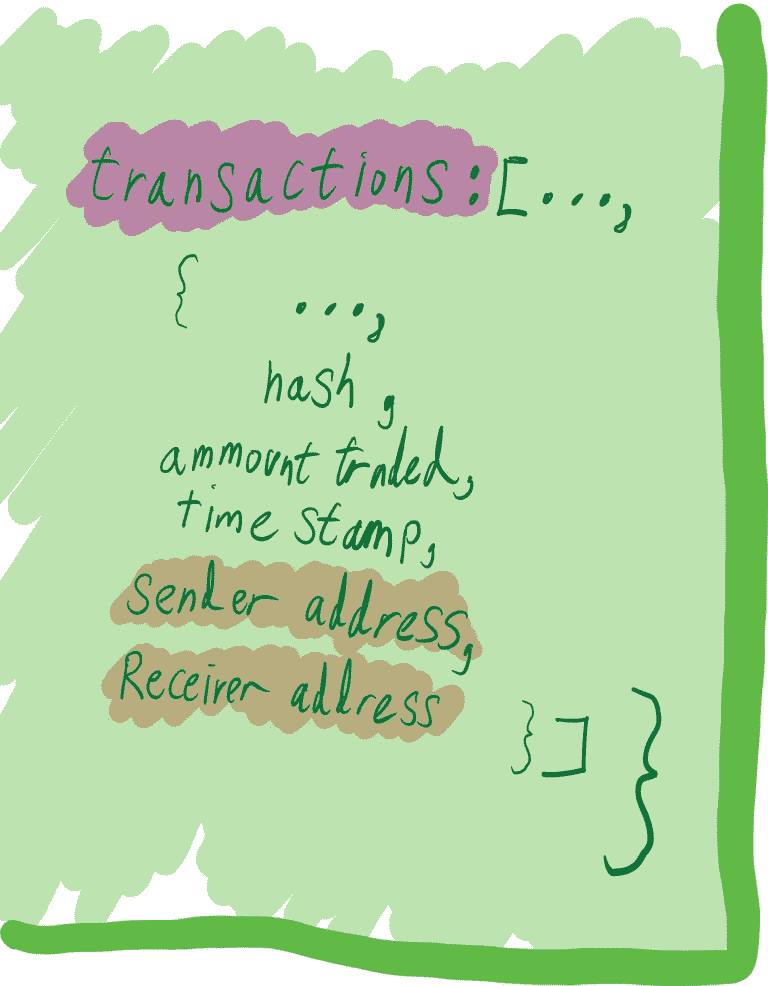 transactions:[...,
{ ...,
hash,
ammount traded,
time stamp,
sender address,
Receiver address
}] }